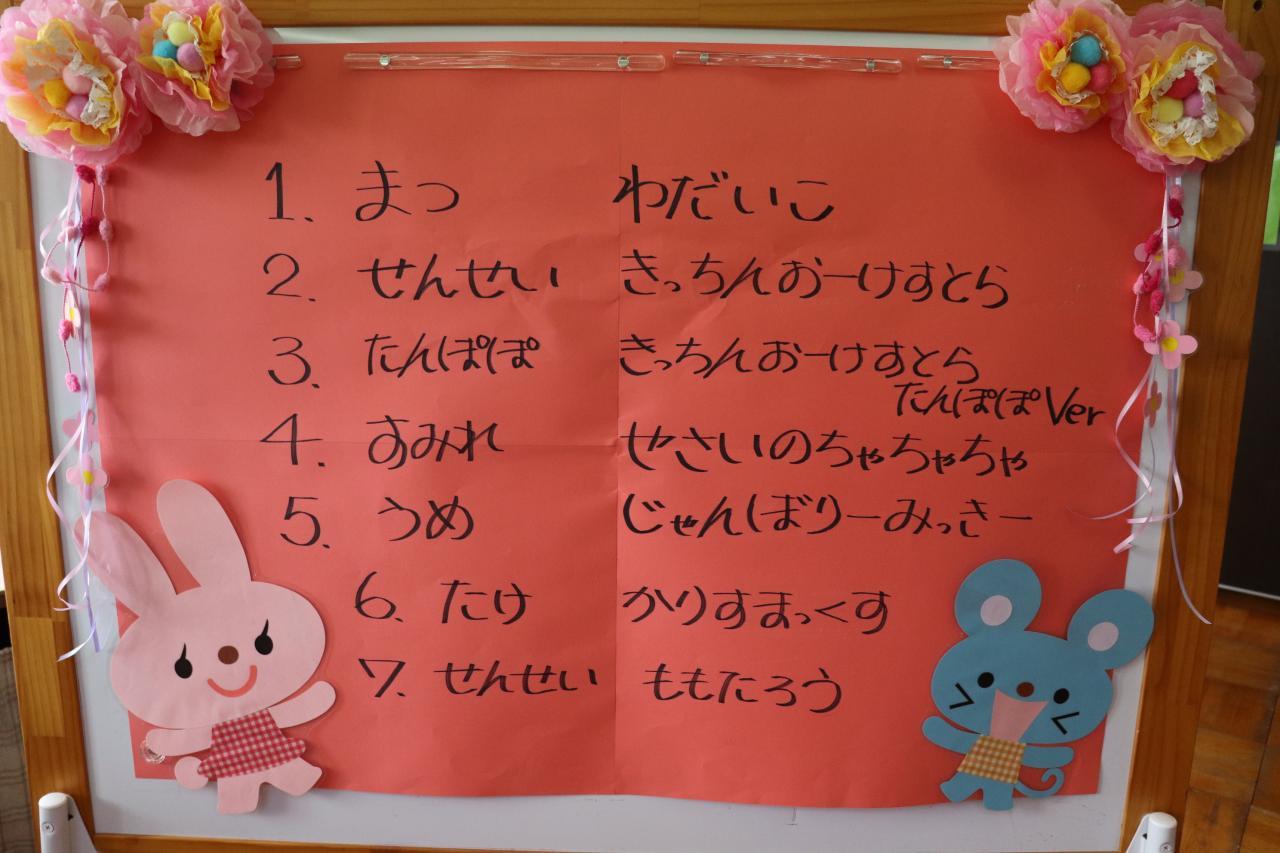 1. まつ わだいこ
2. せんせい きっちんおーけすとら
3. たんぽぽ きっちんおーけすとら
たんぽぽVer
4. すみれ やさいのちゃちゃちゃ
5. うめ じゃんばりーみっきー
6. たけ かりすまっくす
7. せんせい ももたろう